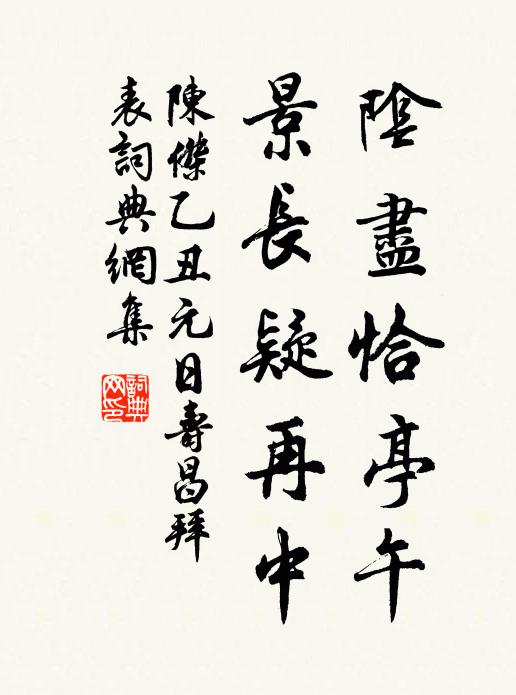 陰盡恰亭午
景長疑再中
陳傑乙丑元日壽昌拜
表詞典網集
詞典网印